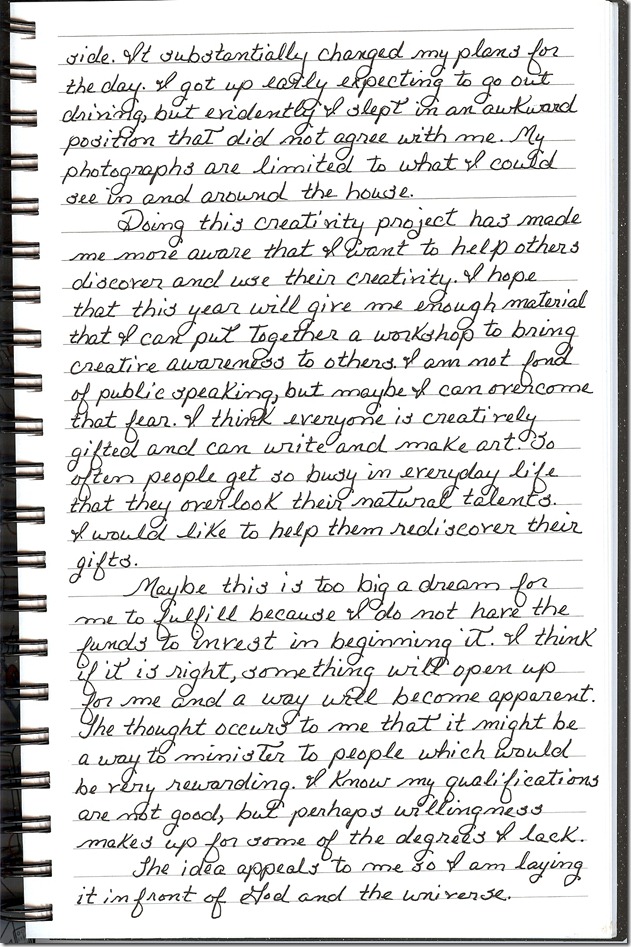 side. It substantially changed my plans for
the day. I got up early expecting to go out
driving, but evidently I slept in an awkward
position that did not agree with me. My
photographs are limited to what I could
see in and around the house.
Doing this creativity project has made
me more aware that I want to help others
discover and use their creativity. I hope
that this year will give me enough material
that I can put together a workshop to bring
creative awareness to others. I am not fond
of public speaking, but maybe I can overcome
that fear. I think everyone is creatively
gifted and can write and make art. So
often people get so busy in everyday life
that they overlook their natural talents.
I would like to help them rediscover their
gifts.
Maybe this is too big a dream for
me to fulfill because I do not have the
funds to invest in beginning it. I think
if it is right, something will open up
for me and a way will become apparent.
The thought occurs to me that it might be
a way to minister to people which would
be very rewarding. I know my qualifications
are not good, but perhaps willingness
makes up for some of the degrees I lack.
The idea appeals to me so I am laying
it in front of God and the universe.